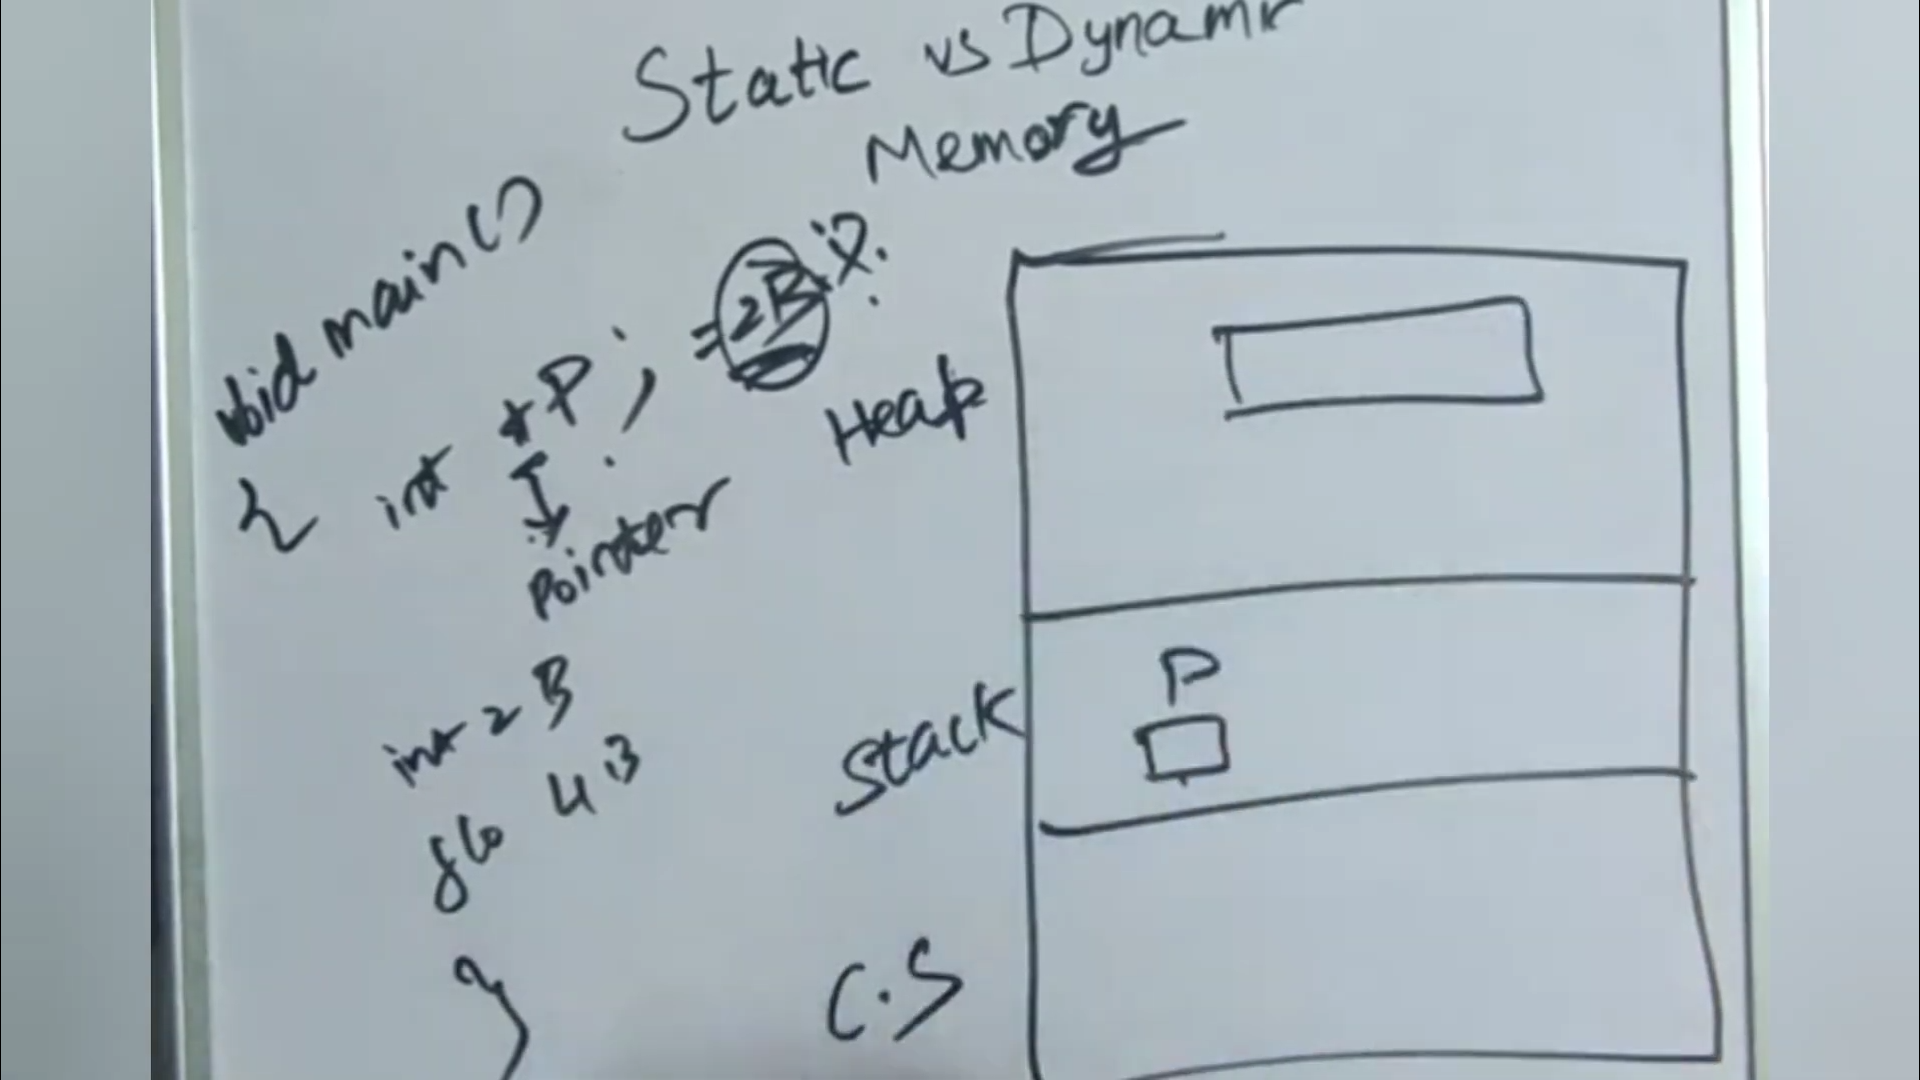 Static vs Dynami
Memory
void main()
{ int *P; = 2B
Pointer
int 2 B
flo 4 B
}
Heap
P
Stack
C.S